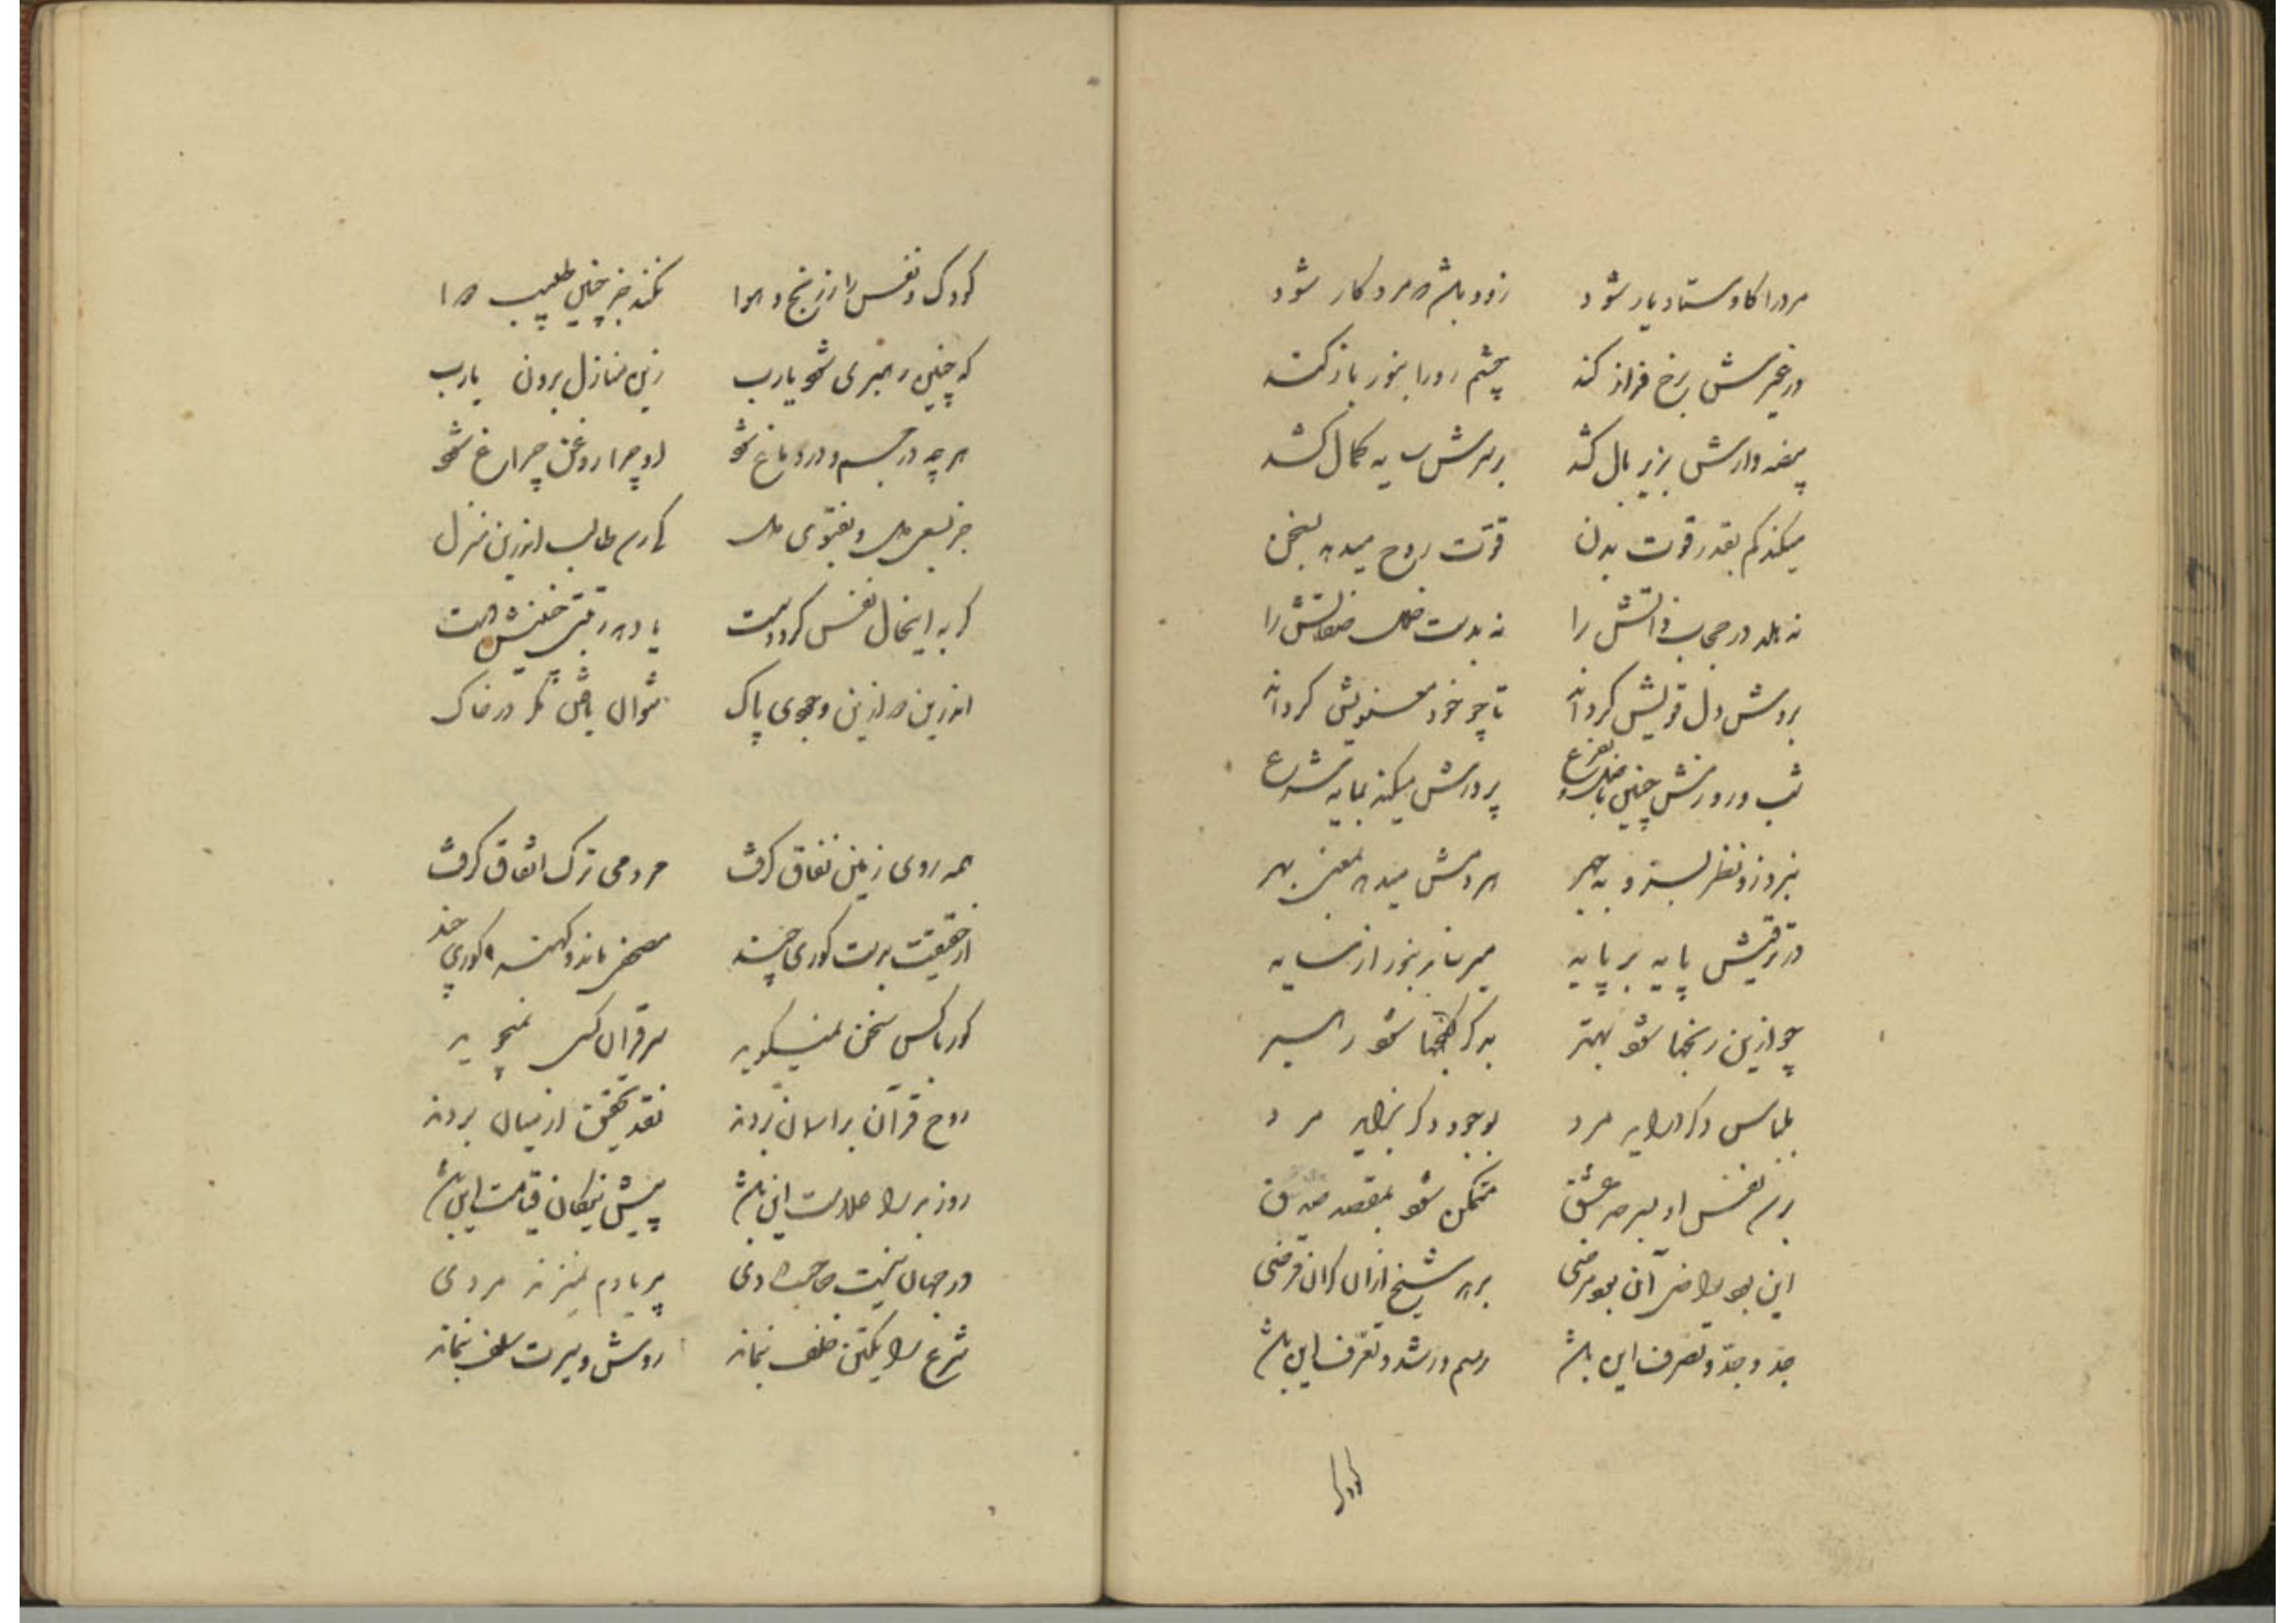 مرد را کاوستاد یار شود زود باشد که مرد کار شود
در غیرش برخ فراز کند چشم او را بنور باز کند
بیضه وارش بزیر بال کشد بر سرش سایه کمال کشد
میکند کم بقدر قوت بدن قوت روح میدهد بسخن
نه هلد در حجاب ذاتش را نه بدست صفاتش را
بروش دل قویش گرداند تا چو خود معنویش گرداند
شب و روزش چنین باصل و بفرع پرورش میکند بمایه شرع
نبرد زو نظر به چهر هر دمش میدهد بمعنی بهر
در ترقیش پایه بر پایه میرساند بنور از سایه
چو ازین رنجها شود بهتر شود راهبر
بلباس دگر درآید مرد بوجود دگر برآید مرد
برهد نفس او بسرحد عشق متمکن شود بمقعد صدق
این بود راضی آن بود مرضی برهد شیخ ازان گران قرضی
جد و جد و تصرف این باشد رسم و رشد و تعرف این باشد
کودک
کودک نفس را ز رنج و هوا نکند جز چنین طبیب رها
که چنین رهبری شود یارب زین منازل برون یارب
هر چه در جسم و در دماغ شود او چرا روغن چراغ شود
جز بسعی دل و بفتوی دل نارهد طالب اندرین منزل
گر به اینحال نفس گردد مست یا دهد رقتی خفیش دست
اندرین ره ازین وجودی پاک نتوان یافتن مگر در خاک
همه روی زمین نفاق گرفت مردمی ترک اتفاق گرفت
از حقیقت بدست کوری چند مصحفی ماند و کهنه گوری چند
گور با کس سخن نمیگوید سر قرآن کسی نمیجوید
روح قرآن بر آسمان بردند نقد تحقیق از میان بردند
روز بد را علامت این باشد پیش نیکان قیامت این باشد
در جهان نیست صاحب دردی پر بادم نمیزند مردی
شرع را یکتن خلف بنماند روش و سیرت سلف بنماند